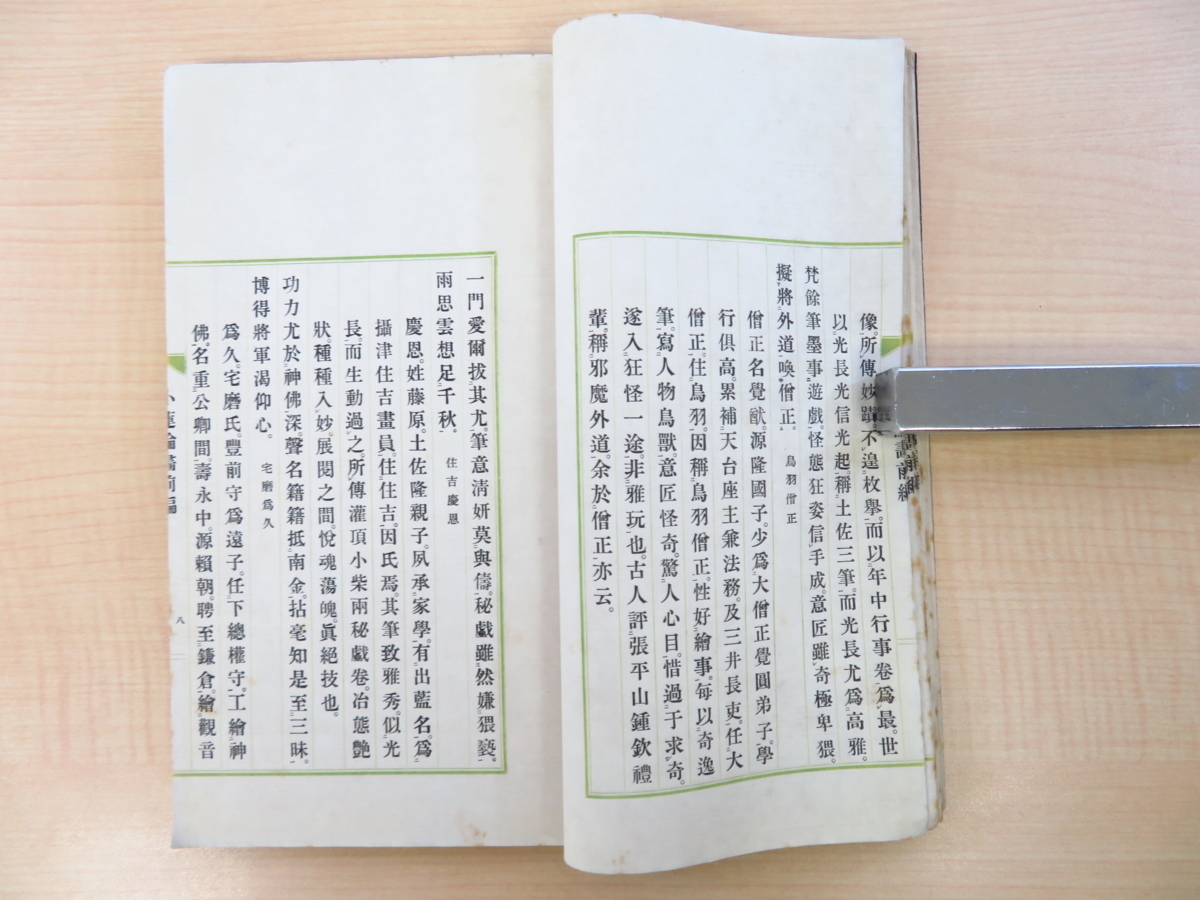 像。所傳妙蹟。不遑枚擧。而以年中行事卷爲最。世
以光長光信光起。稱土佐三筆。而光長尤爲高雅。
梵餘筆墨事遊戲。怪態狂姿信手成。意匠雖奇極卑猥。
擬將外道喚僧正。 鳥羽僧正
僧正名覺猷。源隆國子。少爲大僧正覺圓弟子。學
行俱高。累補天台座主兼法務。及三井長吏。任大
僧正。住鳥羽。因稱鳥羽僧正。性好繪事。每以奇逸
筆。寫人物鳥獸。意匠怪奇。驚人心目。惜過于求奇。
遂入狂怪一途。非雅玩也。古人評張平山鍾欽禮
輩。稱邪魔外道。余於僧正亦云。
一門愛爾拔其尤。筆意淸妍莫與儔。秘戲雖然嫌猥褻。
雨思雲想足千秋。 住吉慶恩
慶恩。姓藤原。土佐隆親子。夙承家學。有出藍名。爲
攝津住吉畫員。住住吉。因氏焉。其筆致雅秀。似光
長。而生動過之。所傳灌頂小柴兩秘戲卷。冶態艷
狀。種種入妙。展閱之間。悅魂蕩魄。眞絕技也。
功力尤於神佛深。聲名籍籍抵南金。拈毫知是至三昧。
博得將軍渴仰心。 宅磨爲久
爲久。宅磨氏。豐前守爲遠子。任下總權守。工繪神
佛。名重公卿間。壽永中。源賴朝。聘至鎌倉。繪觀音
八